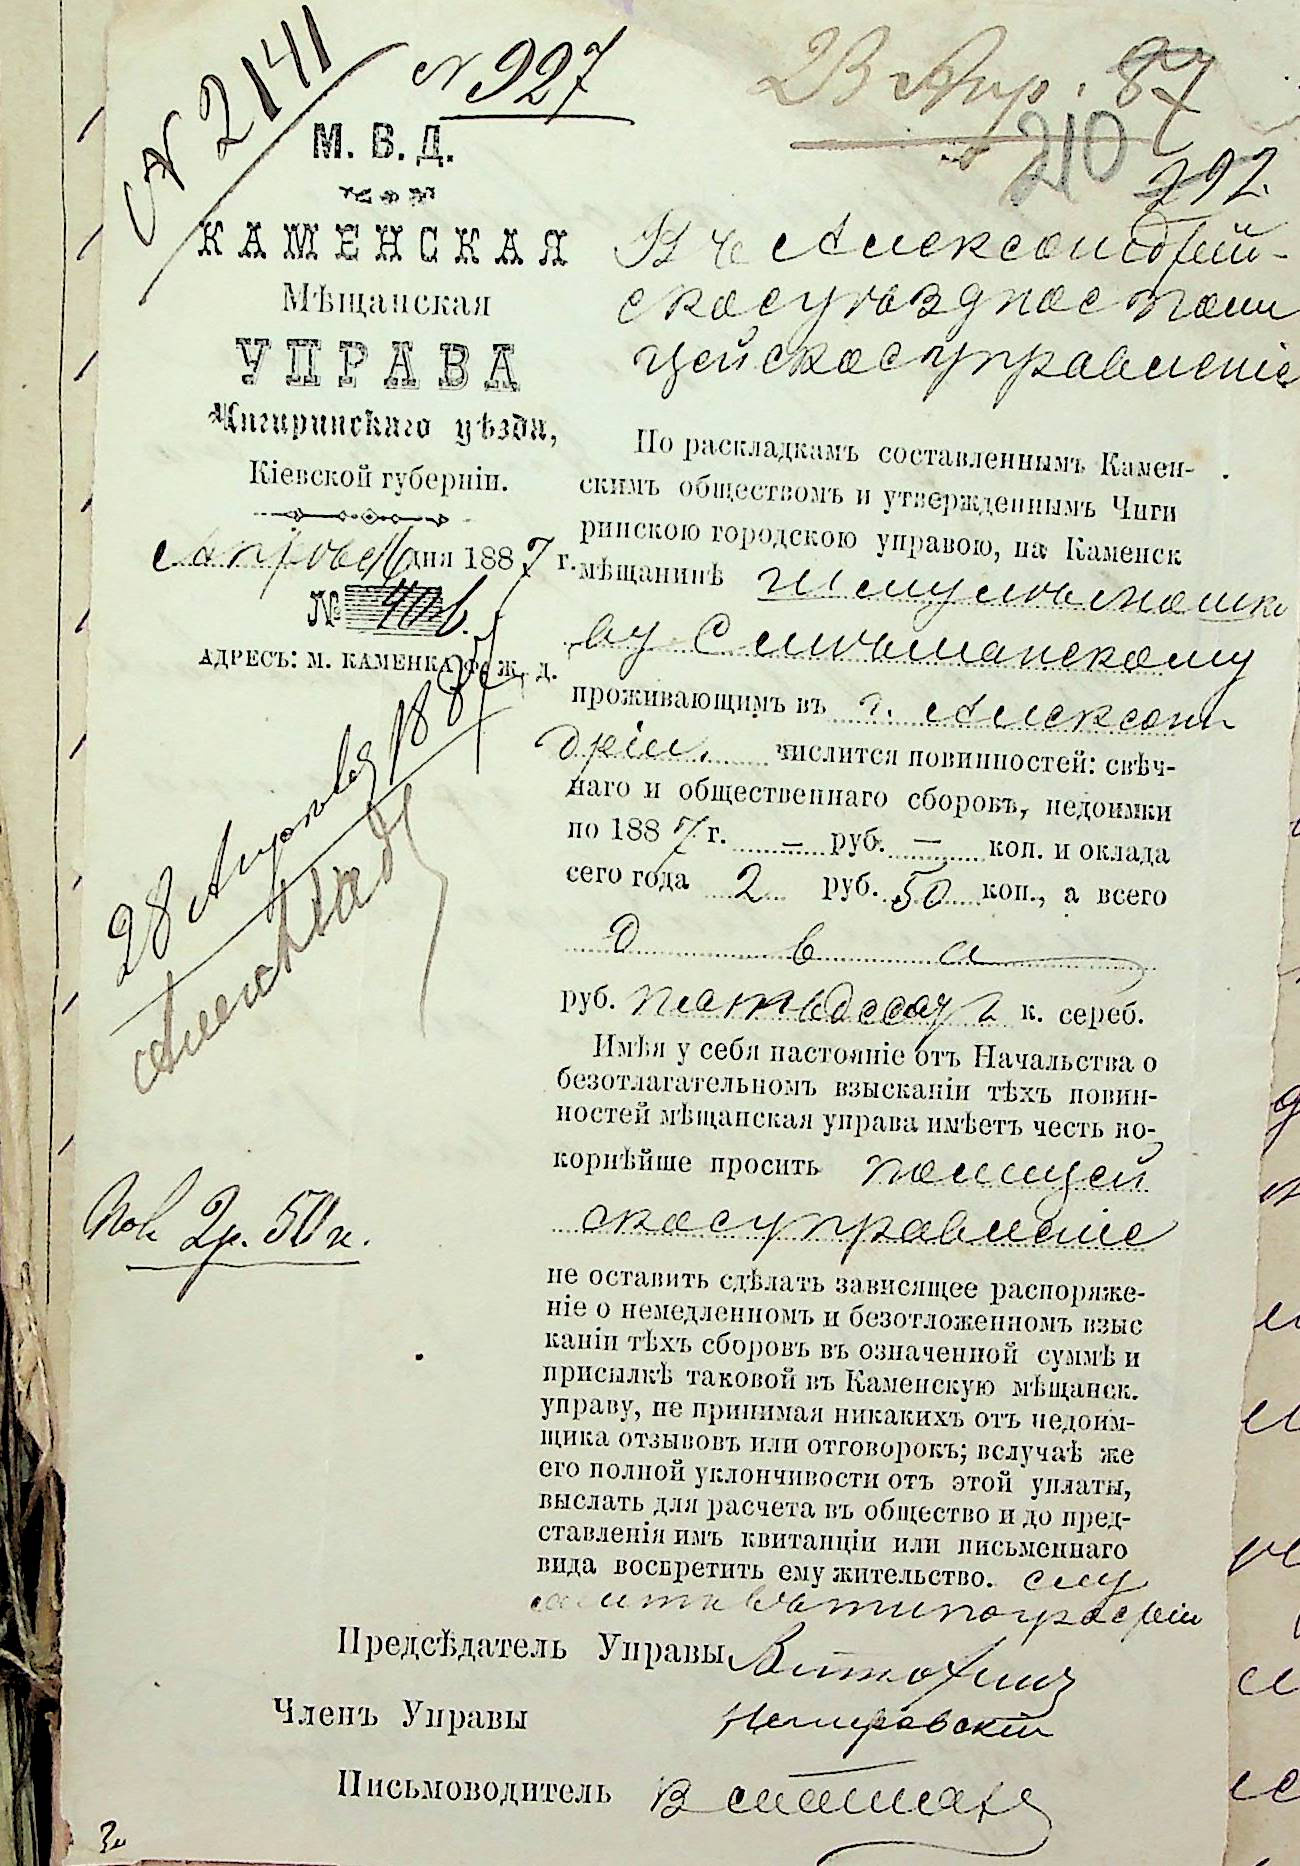 № 2141
№ 927
23 Апр. 87
210
212.
М. В. Д.
КАМЕНСКАЯ
Мѣщанская
УПРАВА
Чигиринскаго уѣзда,
Кіевской губерніи.
Апрѣля дня 1887 г.
№
АДРЕСЪ: М. КАМЕНКА Ф. Ж. Д.
28 Апрѣля 1887
Пов 2 р. 50 к.
Въ Александрій-
ское уѣздное поли
цейское управленіе
По раскладкамъ составленнымъ Камен-
скимъ обществомъ и утвержденнымъ Чиги
ринскою городскою управою, на Каменск
мѣщанинѣ Шмулѣ Мошко
ву Смѣлянскому
проживающимъ въ г. Алексан
дріи. числится повинностей: свѣч-
наго и общественнаго сборовъ, недоимки
по 1887 г. – руб. – коп. и оклада
сего года 2 руб. 50 коп., а всего
два
руб. пятьдесят к. сереб.
Имѣя у себя настояніе отъ Начальства о
безотлагательномъ взысканіи тѣхъ повин-
ностей мѣщанская управа имѣетъ честь по-
корнѣйше просить полицей
ское управленіе
не оставить сдѣлать зависящее распоряже-
ніе о немедленномъ и безотложенномъ взыс
каніи тѣхъ сборовъ въ означенной суммѣ и
присылкѣ таковой въ Каменскую мѣщанск.
управу, не принимая никакихъ отъ недоим-
щика отзывовъ или отговорокъ; вслучаѣ же
его полной уклончивости отъ этой уплаты,
выслать для расчета въ общество и до пред-
ставленія имъ квитанціи или письменнаго
вида воспретить ему жительство. слу
жить въ типографіи
Предсѣдатель Управы
Членъ Управы Немировскій
Письмоводитель